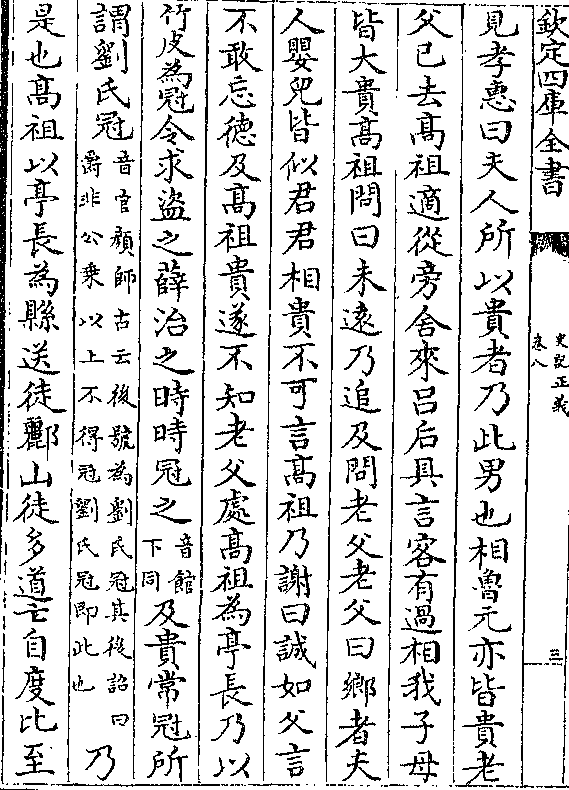 欽定四庫全書
史記正義
卷八
三
見孝惠曰夫人所以貴者乃此男也相魯元亦皆貴老
父已去高祖適從旁舍來吕后具言客有過相我子母
皆大貴高祖問曰未遠乃追及問老父老父曰鄉者夫
人嬰兒皆似君君相貴不可言高祖乃謝曰誠如父言
不敢忘德及高祖貴遂不知老父處高祖為亭長乃以
竹皮為冠令求盜之薛治之時時冠之音館下同及貴常冠所
謂劉氏冠音官顏師古云後號為劉氏冠其後詔曰爵非公乗以上不得冠劉氏冠即此也乃
是也高祖以亭長為縣送徒酈山徒多道亡自度比至